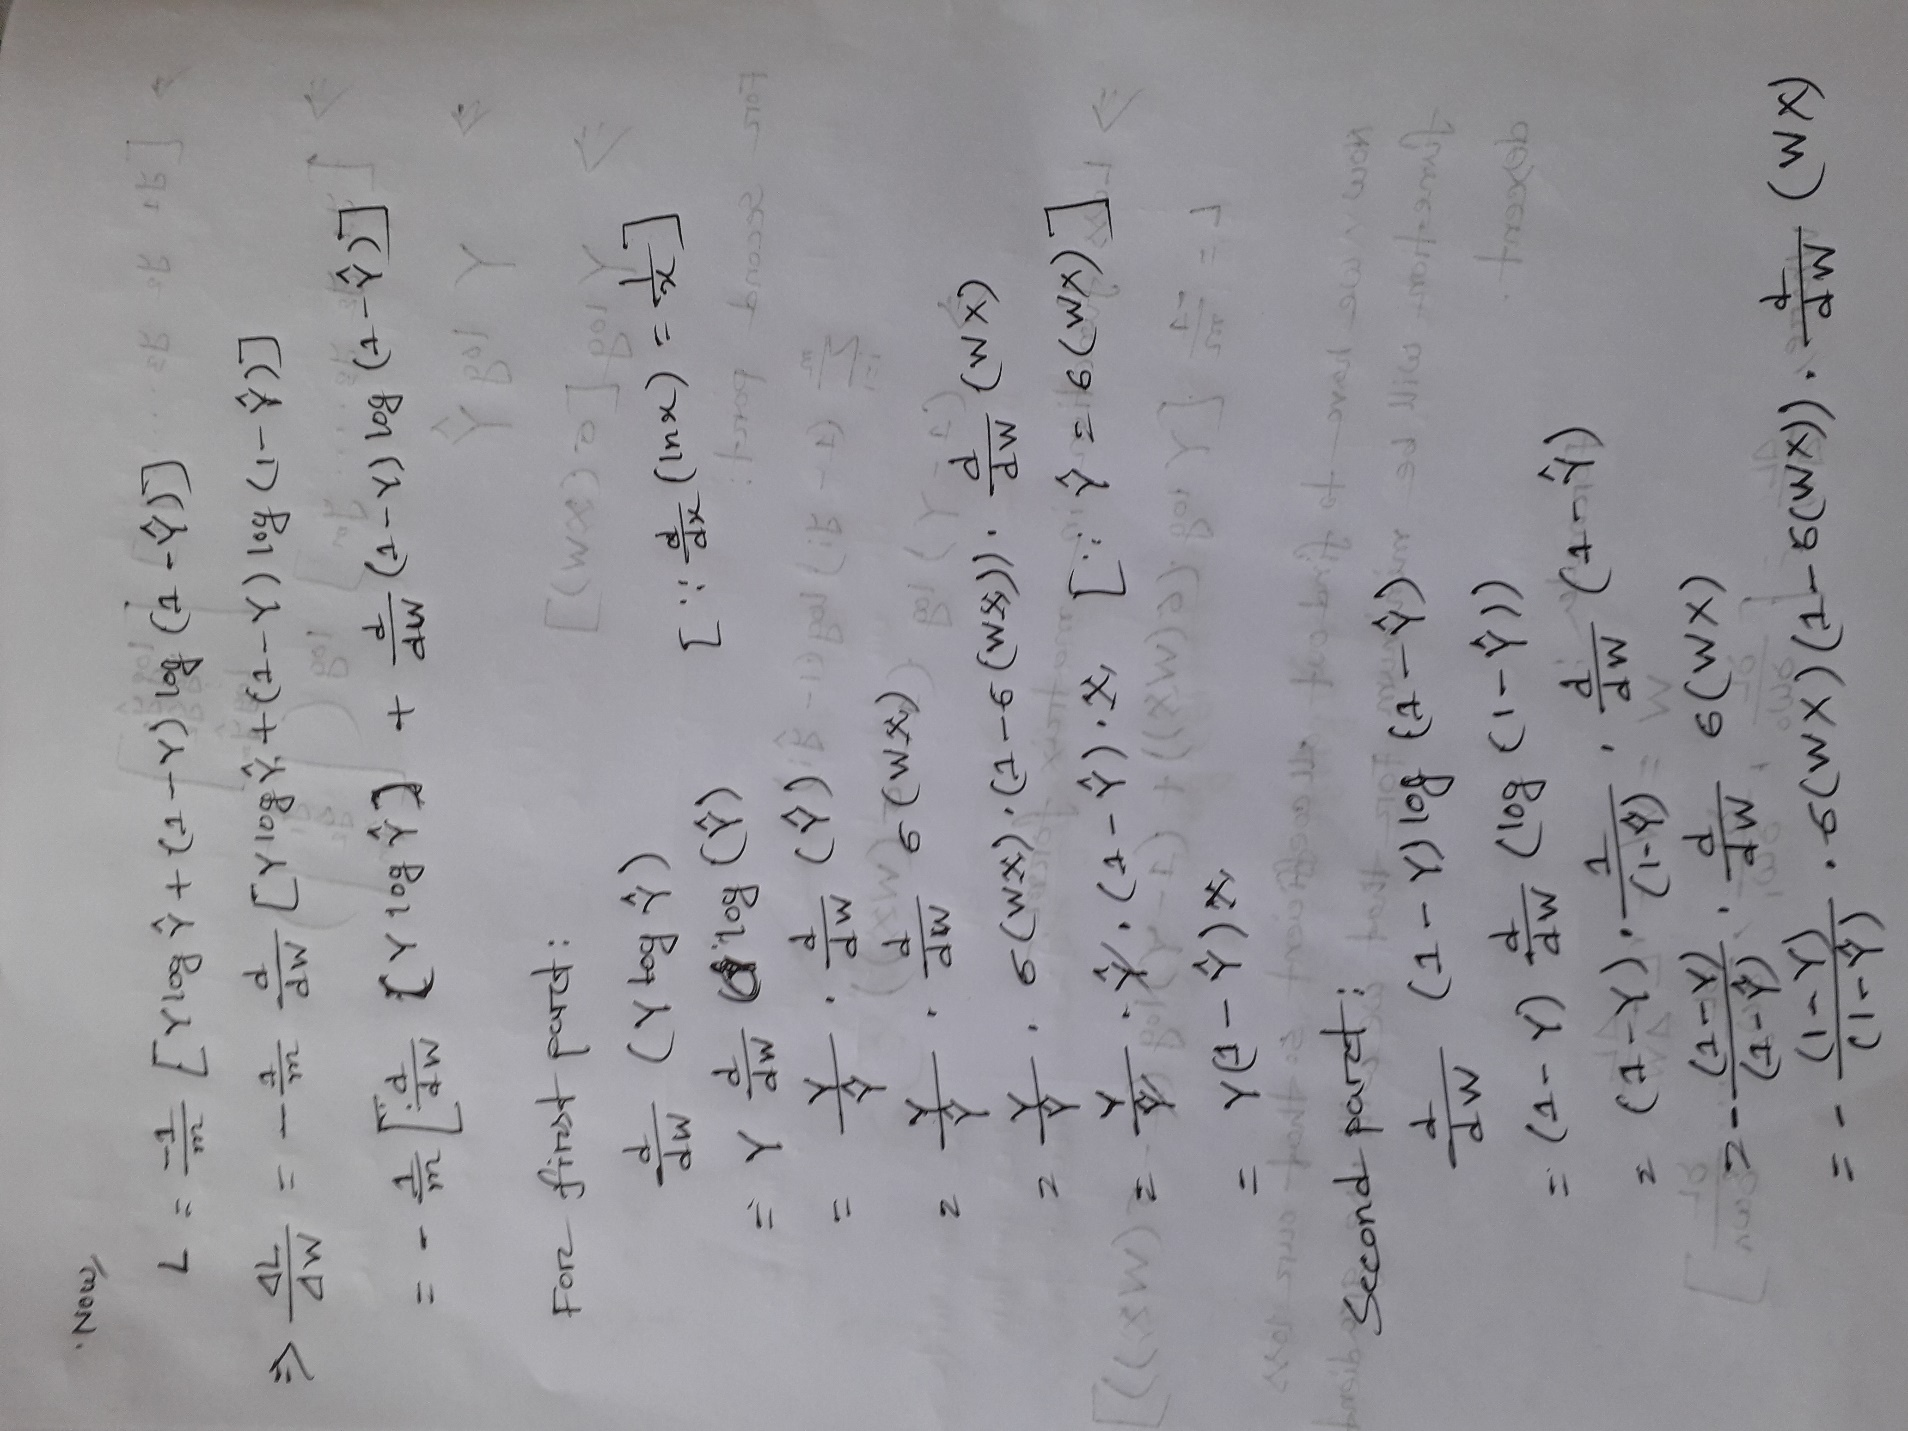 Now,
L = -1/m [Y log Ŷ + (1 - Y) log (1 - Ŷ)]
⇒ ΔL/ΔW = - 1/m d/dW [Y log Ŷ + (1 - Y) log (1 - Ŷ)]
= - 1/m [d/dW [Y log Ŷ] + d/dW (1 - Y) log (1 - Ŷ)]
For first part:
d/dW (Y log Ŷ)
= Y d/dW log (Ŷ) [∵ d/dx (ln x) = 1/x]
= Y/Ŷ . d/dW (Ŷ)
= Y/Ŷ . d/dW σ(WX)
= Y/Ŷ . σ(WX).(1 - σ(WX)). d/dW (WX)
= Y/Ŷ . Ŷ.(1 - Ŷ).X [∵ Ŷ = σ(WX)]
= Y(1 - Ŷ)X
Second part:
d/dW (1 - Y) log (1 - Ŷ)
= (1 - Y) d/dW (log (1 - Ŷ))
= (1 - Y). 1/(1-Ŷ) . d/dW (1 - Ŷ)
= - (1-Y)/(1-Ŷ) . d/dW σ(WX)
= - (1-Y)/(1-Ŷ) . σ(WX)(1 - σ(WX)). d/dW (WX)